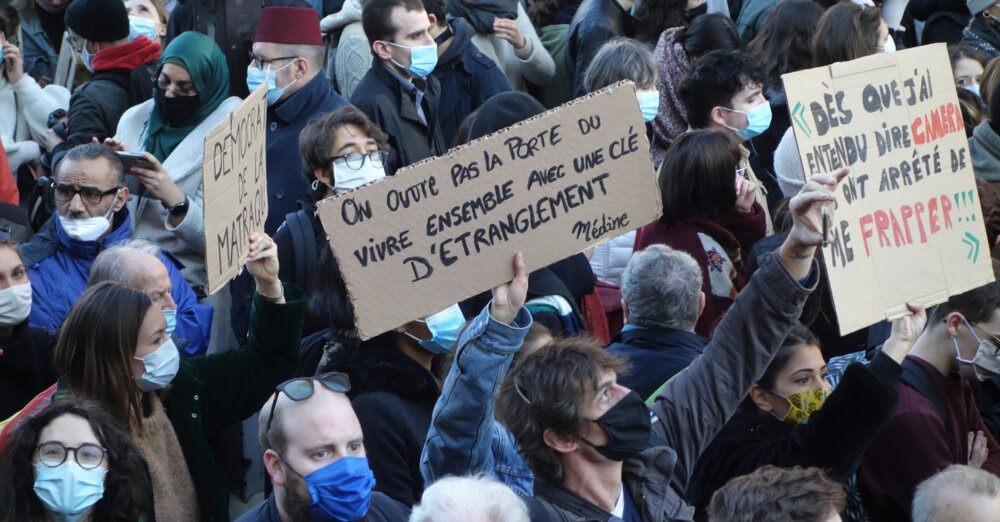 DÉMOCRAT
DE LA
MATRAQ
ON OUVRE PAS LA PORTE DU
VIVRE ENSEMBLE AVEC UNE CLÉ
D'ETRANGLEMENT
Médine
"DÈS QUE J'AI
ENTENDU DIRE CAMERA
ILS ONT ARRÊTÉ DE
ME FRAPPER!!!"